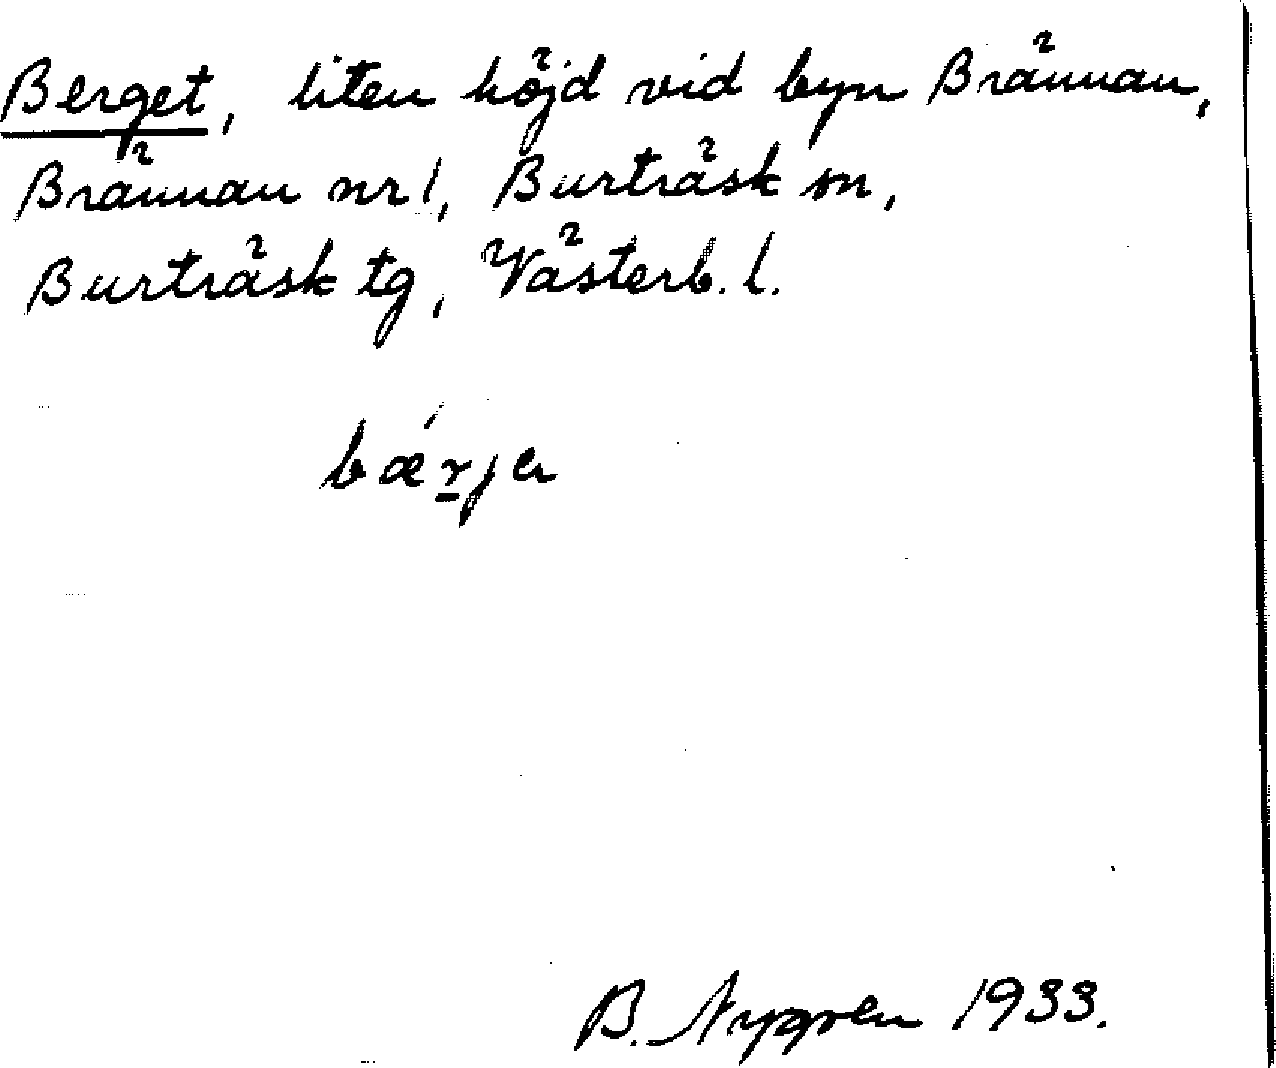 Berget, liten höjd vid byn Brännan,
Brännan nr 1, Burträsk sn,
Burträsk tg, Västerb. l.
bærjə
B. Nygren 1933.